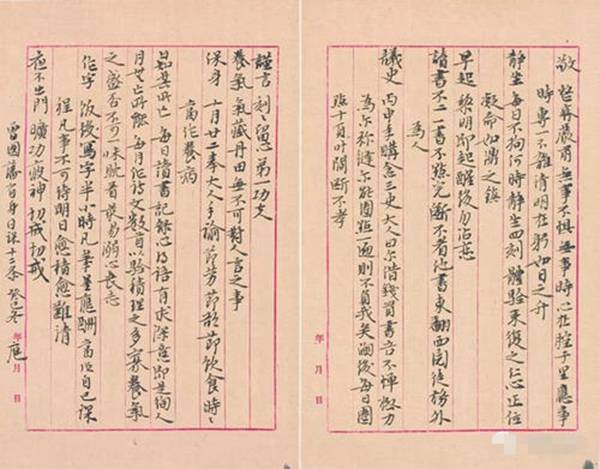 敬 整齊嚴肅無事不懼無事時心在腔子里應事
時專一不雜清明在躬如日之升
静坐每日不拘何時静坐四刻體驗來復之仁心正位
凝命如鼎之鎮
早起黎明即起醒後勿沾恋
讀書不二一書不點完斷不看他書東翻西閱徒務外
為人
讀史 丙申年購念三史大人曰尔借錢買書吾不惮極力
為尔弥縫尔能圈點一遍則不負我矣嗣後每日圈
點十頁间斷不孝
年 月 日
謹言刻刻留心第一功夫
養氣氣藏丹田無不可對人言之事
保身 十月廿二奉大人手諭節劳節欲節飲食時時
當作養病
日知其所亡每日讀書記錄心得語有求深意即是徇人
月無亡所能每月作詩文數首以驗積理之多寡養氣
之盛否不可一味耽着最易溺心丧志
作字 飯後寫字半小時凡筆墨應酬當作自己課
程凡事不可待明日愈積愈難清
夜不出門 曠功疲神切戒切戒
曾國藩 日課十二条
年 月 日